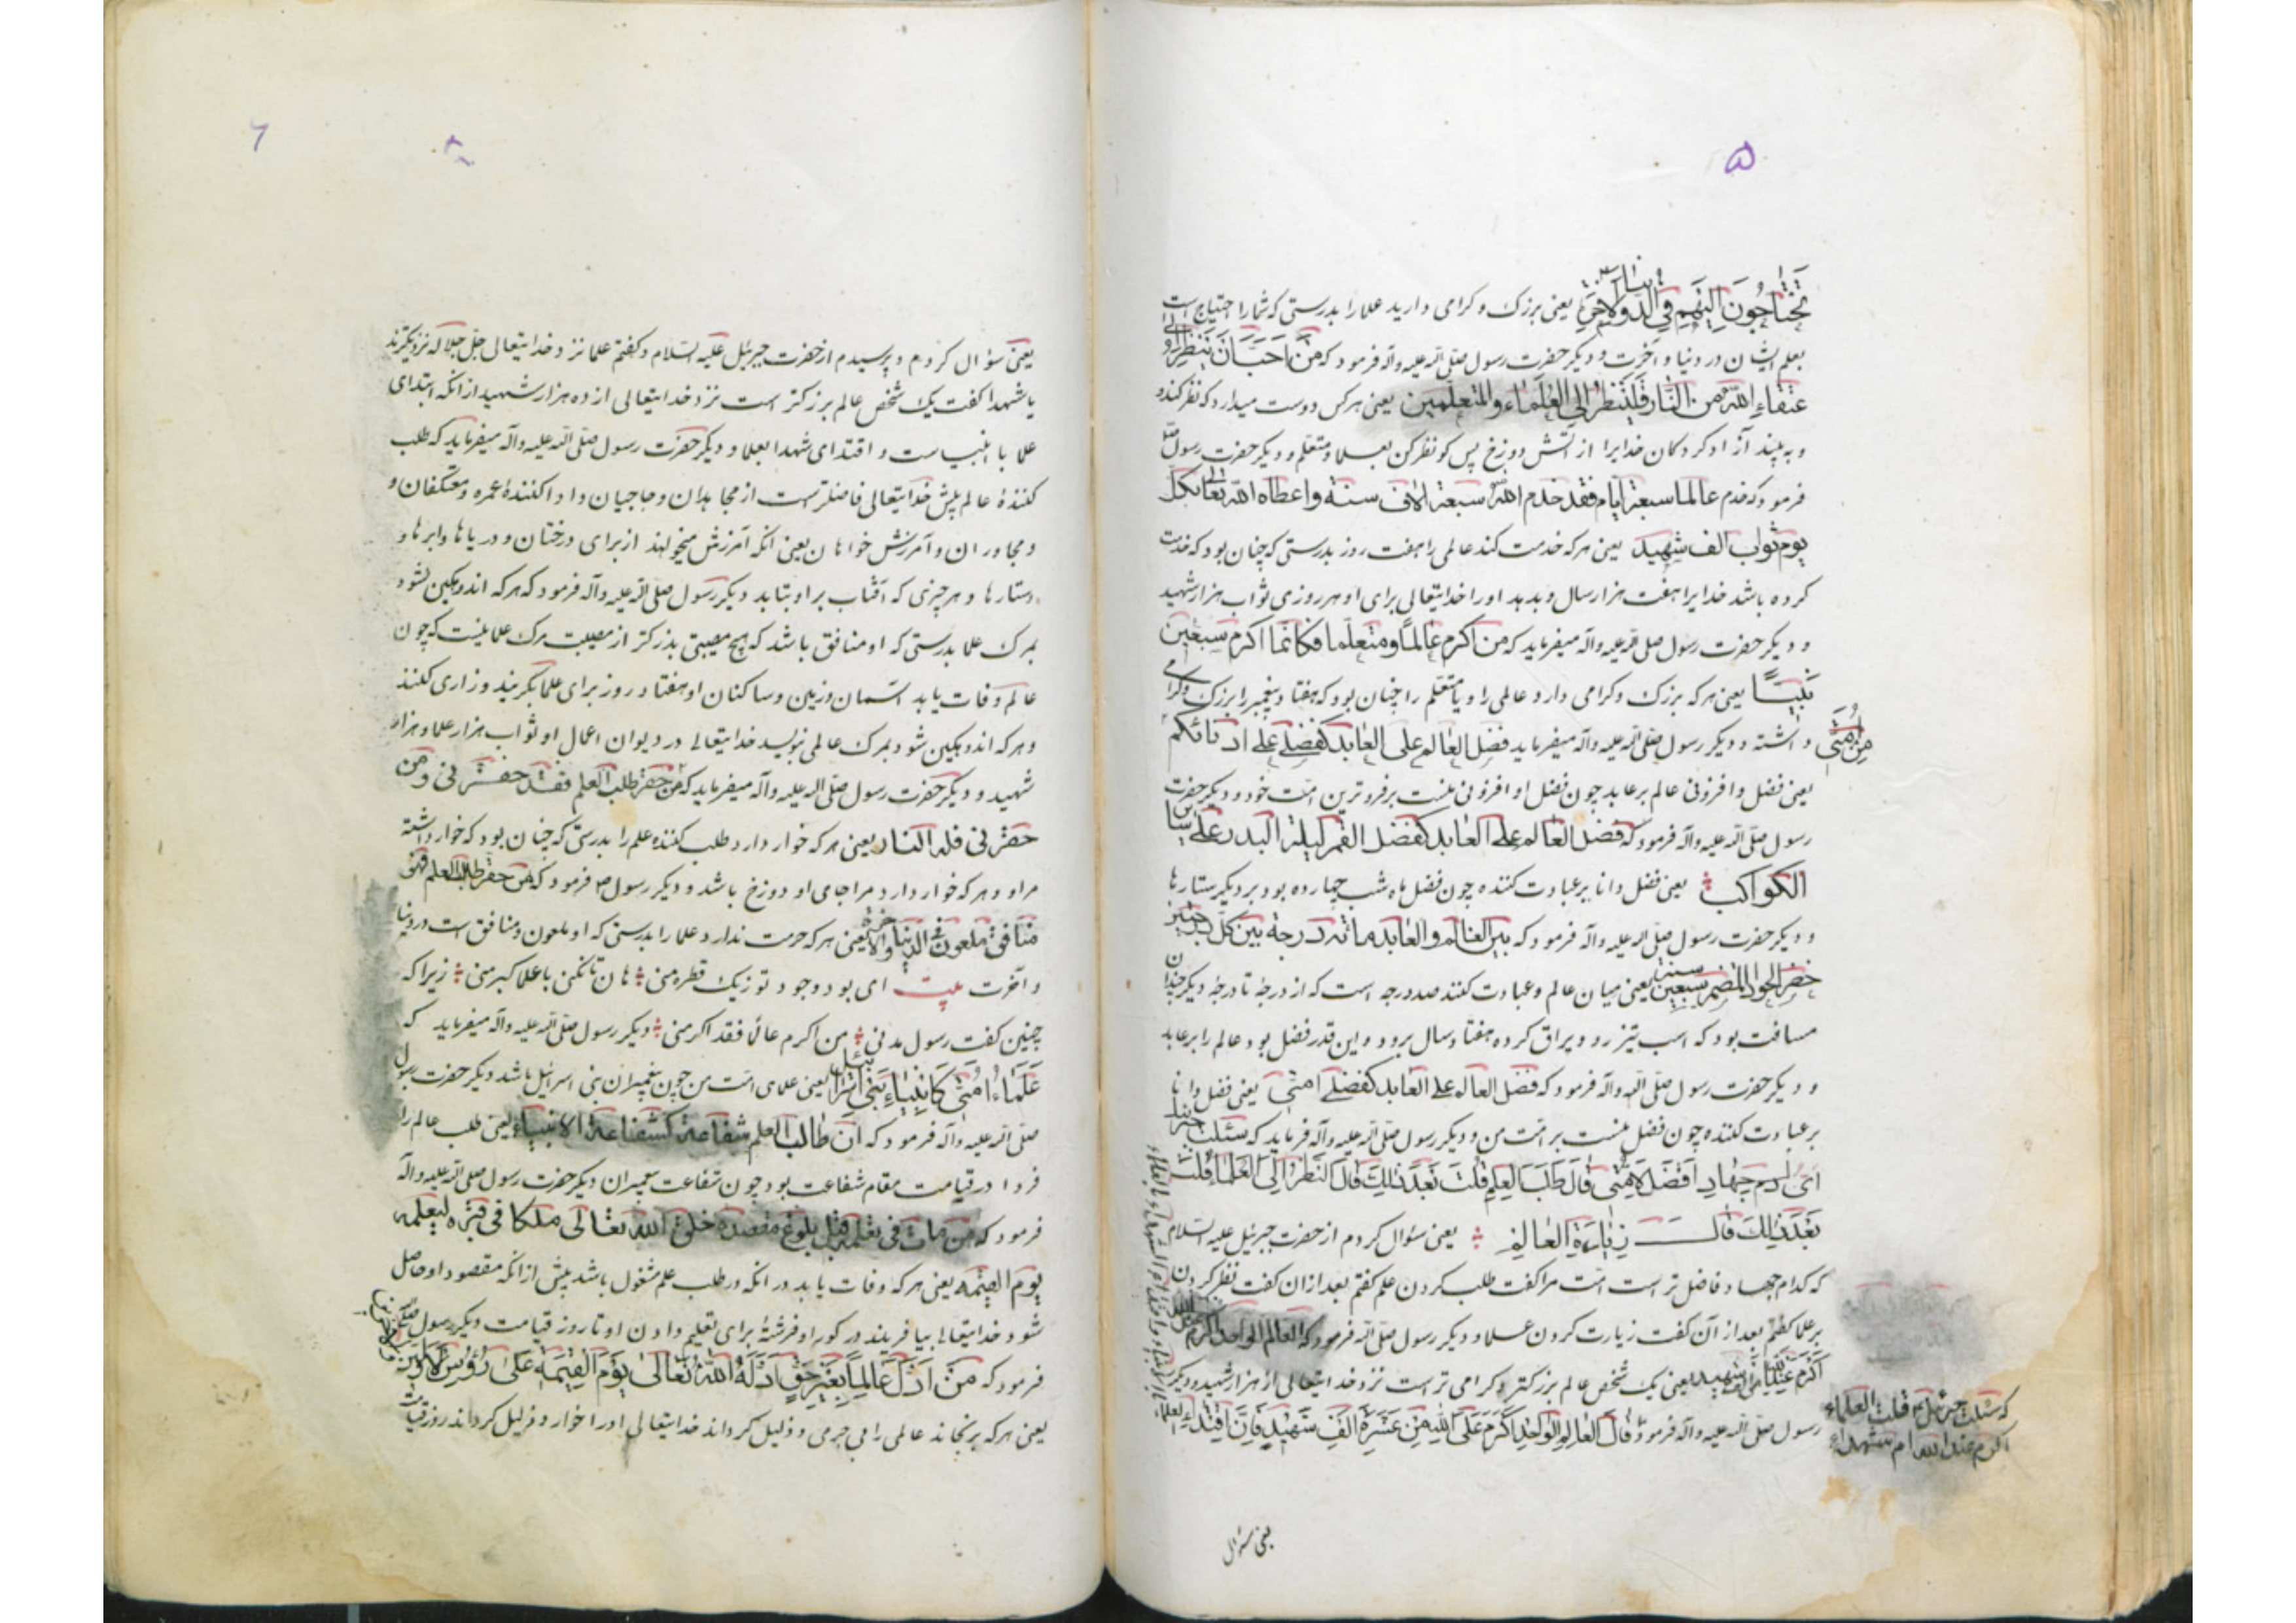 ۵
تحتاجون الیهم فی الدنیا و الاخرة یعنی بزرک و کرامی دارید علما را بدرستی که شما را احتیاج است
بعلم ایشان در دنیا و آخرت و دیکر حضرت رسول صلی الله علیه وآله فرمود که من احب ان ینظر الی
عتقاء الله من النار فلینظر الی العلماء والمتعلمین یعنی هر کس دوست میدارد که نظر کند و
و به بیند آزاد کردکان خدایرا از آتش دوزخ پس کو نظر کن بعلما و متعلم و دیکر حضرت رسول
فرمود که خدم عالما سبعة ایام فقد خدم الله سبعة الاف سنة واعطاه الله تعالی بکل
یوم ثواب الف شهید یعنی هر که خدمت کند عالمی را هفت روز بدرستی که چنان بود که خدمت
کرده باشد خدایرا هفت هزار سال و بدهد او را خدایتعالی برای او هر روزی ثواب هزار شهید
و دیکر حضرت رسول صلی الله علیه وآله میفرماید که من اکرم عالما ومتعلما فکانما اکرم سبعین
نبیّاً یعنی هر که بزرک و کرامی دارد عالمی را و یا متعلم را چنان بود که هفتاد پیغمبر را بزرک و کرامی
داشته و دیکر رسول صلی الله علیه وآله میفرماید فضل العالم علی العابد کفضلی علی ادنائکم
من امتی
یعنی فضل و افزونی عالم بر عابد چون فضل و افزونی منست بر فروترین امت خود و دیکر حضرت
رسول صلی الله علیه وآله فرمود که فضل العالم علی العابد کفضل القمر لیلة البدر علی سایر
الکواکب یعنی فضل دانا بر عبادت کننده چون فضل ماه شب چهارده بود بر دیکر ستارها
و دیکر حضرت رسول صلی الله علیه وآله فرمود که بین العالم والعابد مائة درجة بین کل درجتین
حضر الجواد المضمر سبعین سنة یعنی میان عالم و عبادت کنند صد درجه است که از درجهٔ تا درجهٔ دیکر چندان
مسافت بود که اسب تیز رو و یراق کرده هفتاد سال برود و این قدر فضل بود عالم را بر عابد
و دیکر حضرت رسول صلی الله علیه وآله فرمود که فضل العالم علی العابد کفضلی امتی یعنی فضل دانا
بر عبادت کننده چون فضل منست بر امت من و دیکر رسول صلی الله علیه وآله فرماید که سئلت جبرئیل
ای جهاد افضل لامتی قال طلب العلم قلت بعد ذلک قال النظر الی العلماء قلت
بعد ذلک قال زیارة العالم یعنی سئوال کردم از حضرت جبرئیل علیه السلام
که کدام جهاد فاضل تر است امت مرا کفت طلب کردن علم کفتم بعد از ان کفت نظر کردن
بر علما کفتم بعد از آن کفت زیارت کردن علما و دیکر رسول صلی الله فرمود که العالم الواحد اکرم
اکرم من الف شهید یعنی یک شخص عالم بزرکتر و کرامی تر است نزد خدایتعالی از هزار شهید و دیکر
رسول صلی الله علیه وآله فرمود قال العالم الواحد اکرم علی الله من عشرة الف شهید فان اقتداء العلماء
که سئلت جبرئیل قلت العلماء
اکرم عند الله ام شهداء
یعنی سئوال
۶
یعنی سؤال کردم و پرسیدم از حضرت جبرئیل علیه السلام و کفتم علما نزد خدایتعالی جل جلاله نزدیکترند
یا شهدا کفت یک شخص عالم بزرکتر است نزد خدایتعالی از ده هزار شهید از انکه ابتدای
علما با انبیاست و اقتدای شهدا بعلما و دیکر حضرت رسول صلی الله علیه وآله میفرماید که طلب
کنندهٔ عالم پیش خدایتعالی فاضلتر ست از مجاهدان و حاجیان و ادا کنندهٔ عمره و معتکفان و
و مجاوران و آمرزش خواهان یعنی انکه آمرزش میخواهند از برای درختان و دریاها و ابرها و
وستارها و هر چیزی که آفتاب بر او بتابد دیکر رسول صلی الله علیه وآله فرمود که هر که اندوهکین نشود
بمرک علما بدرستی که او منافق باشد که هیچ مصیبتی بذرکتر از مصیبت مرک علما نیست که چون
عالم وفات یابد اسمان و زمین و ساکنان او هفتاد روز برای علما بکریند و زاری کنند
و هر که اندوهکین شود بمرک عالمی نویسد خدایتعالی در دیوان اعمال او ثواب هزار علما و هزار
شهید و دیکر حضرت رسول صلی الله علیه وآله میفرماید که من حقر طلب العلم فقد حقرنی ومن
حقرنی فله النار یعنی هر که خوار دارد طلب کننده علم را بدرستی که چنان بود که خوار داشته
مرا و هر که خوار دارد مرا جای او دوزخ باشد و دیکر رسول ص فرمود که من حقر طالب العلم فهو
منافق ملعون فی الدنیا والاخرة یعنی هر که حرمت ندارد علما را بدرستی که او ملعون و منافق است در دنیا
و آخرت بیت ای بود وجود تو زیک قطره منی هان تا نکنی با علما کبر منی زیرا که
چنین کفت رسول مدنی من اکرم عالما فقد اکرمنی دیکر رسول صلی الله علیه وآله میفرماید که
علماء امتی کانبیاء بنی اسرائیل یعنی علمای امت من چون پیغمبران بنی اسرائیل باشد دیکر حضرت رسول
صلی الله علیه وآله فرمود که ان طالب العلم شفاعة کشفاعة الانبیاء یعنی طلب عالم را
فردا در قیامت مقام شفاعت بود چون شفاعت پیغمبران دیکر حضرت رسول صلی الله علیه وآله
فرمود که من مات فی تعلمه قبل بلوغ مقصده خلق الله تعالی ملکا فی قبره لیعلمه
یوم القیمه یعنی هر که وفات یابد در انکه در طلب علم مشغول باشد پیش از انکه مقصود او حاصل
شود خدایتعالی بیافریند در کور او فرشتهٔ برای تعلیم دادن او تا روز قیامت و دیکر رسول
فرمود که من اذل عالما بغیر حق اذله الله تعالی یوم القیمة علی رؤس
یعنی هر که برنجاند عالمی را بی جرمی و ذلیل کرداند خدایتعالی او را خوار و ذلیل کرداند روز قیامت